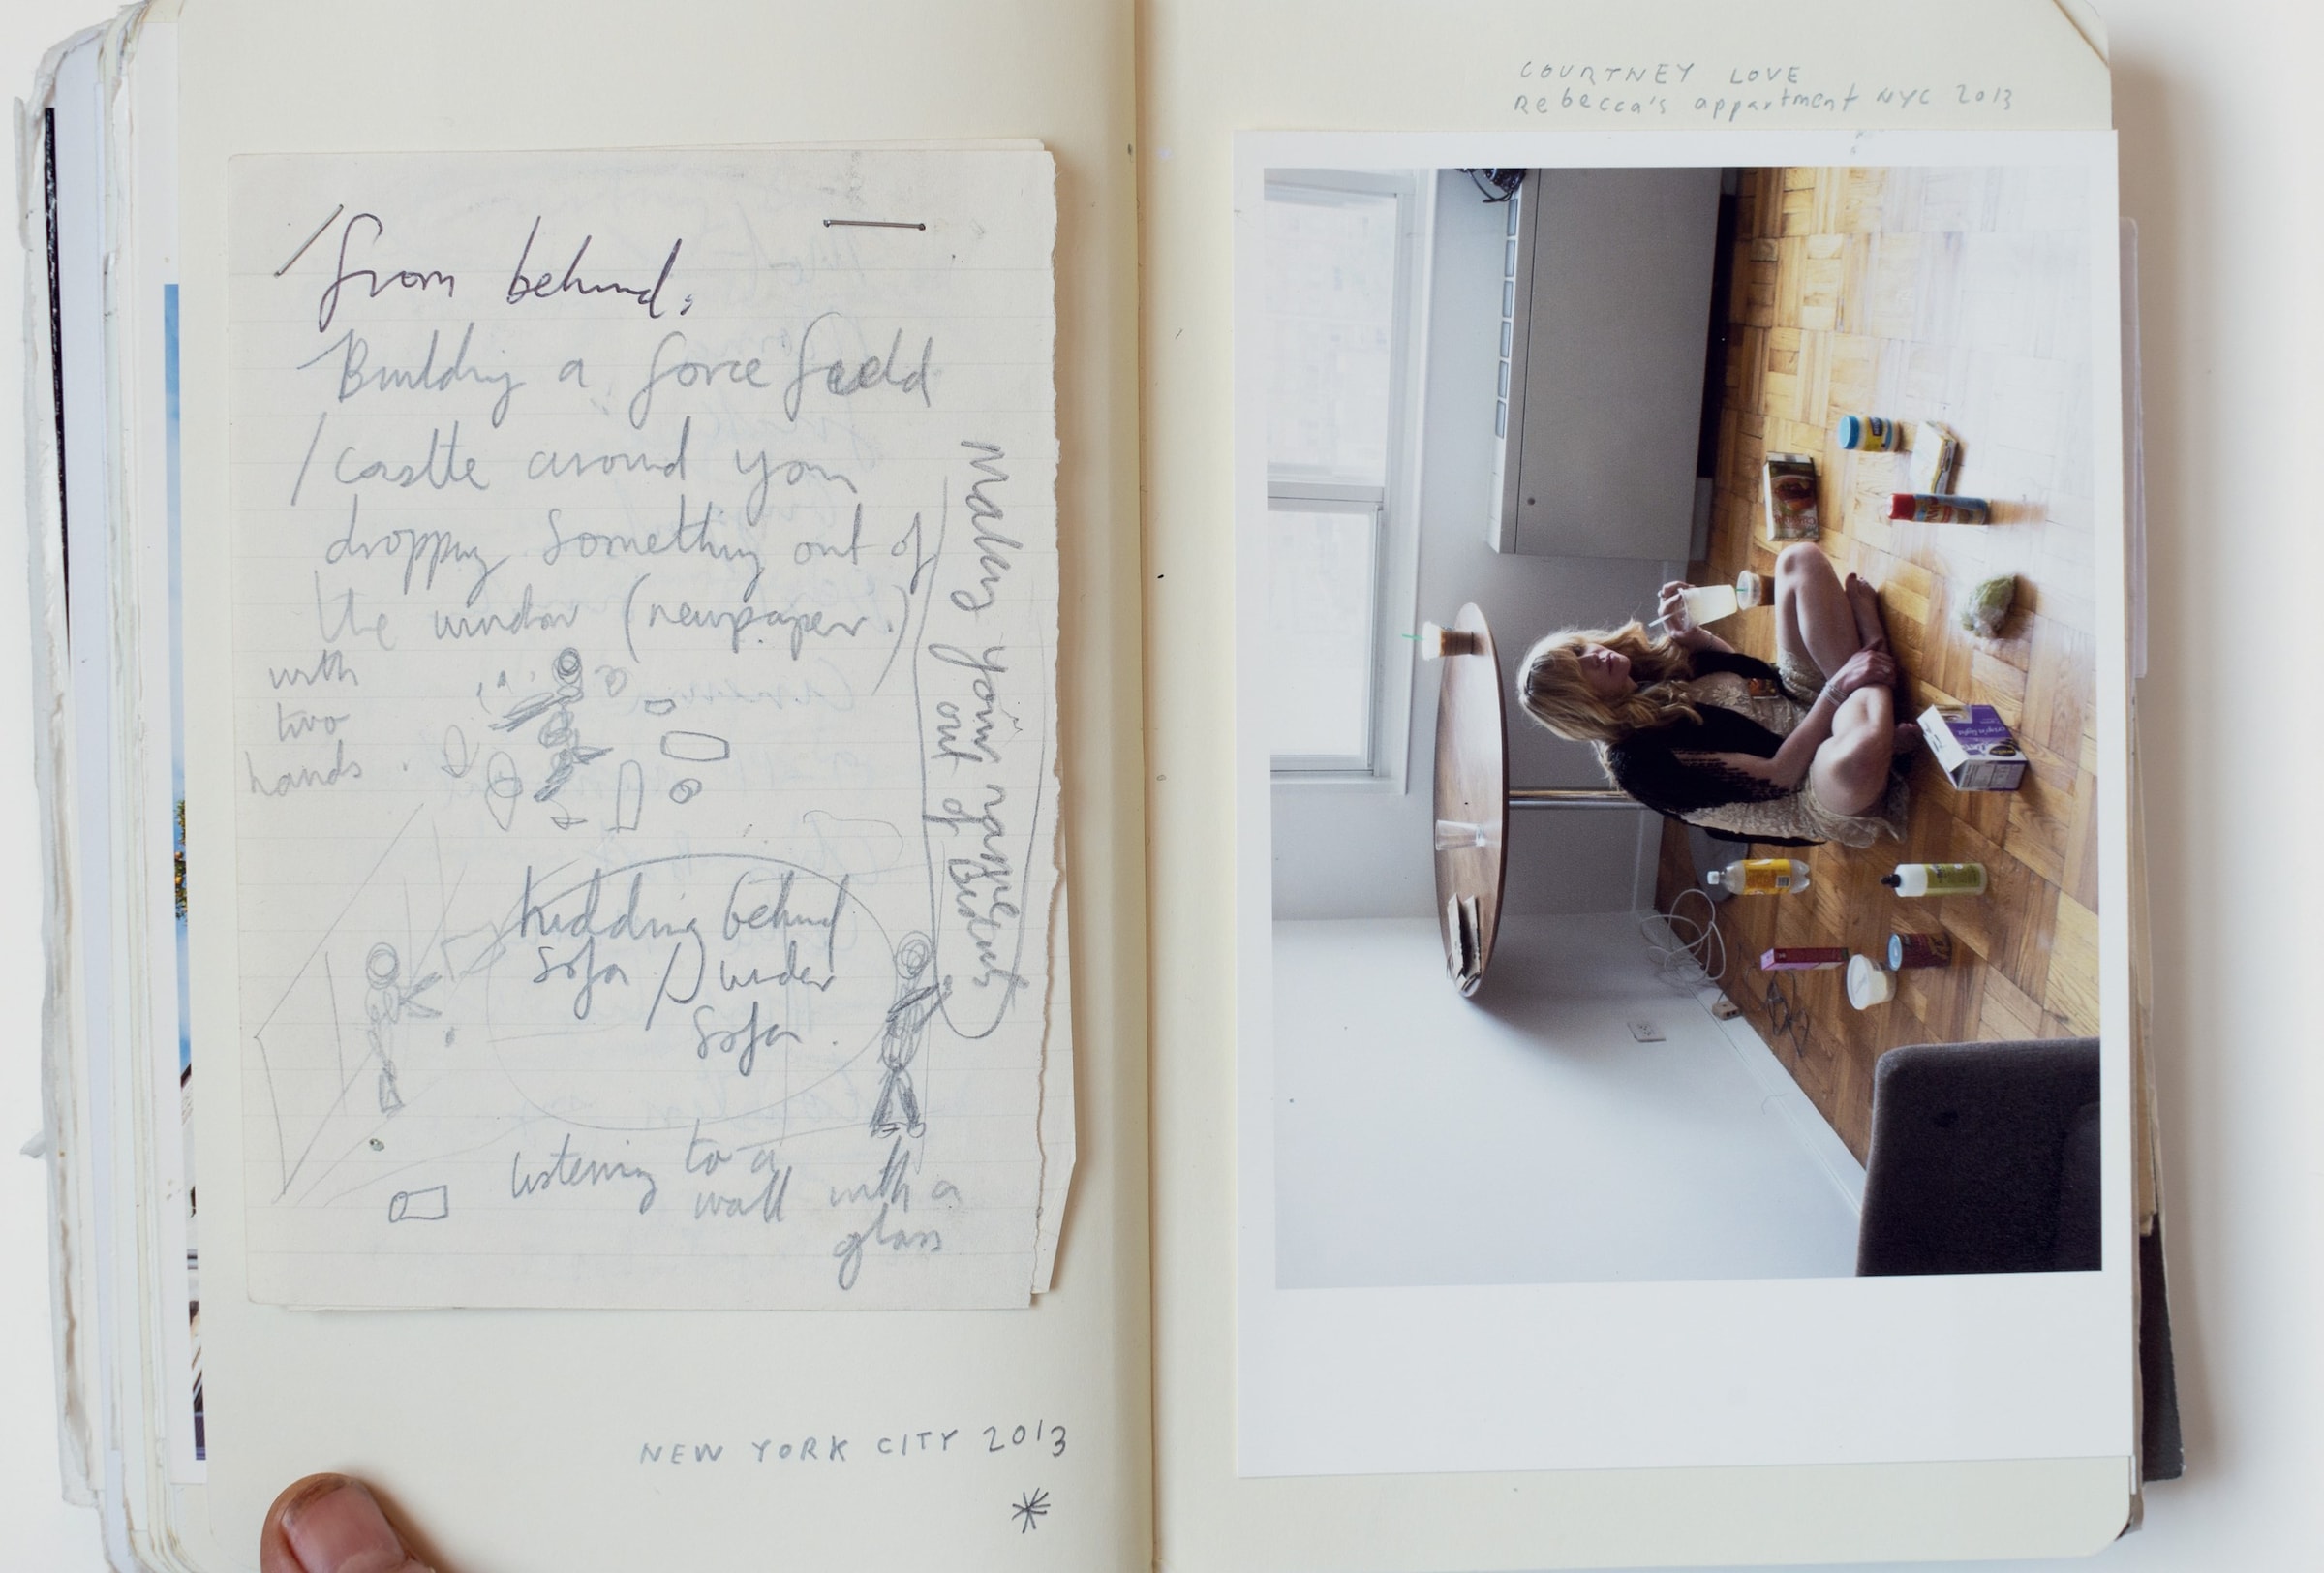 from behind,
Building a force field
/ castle around you
dropping something out of
the window (newspaper.)
with
two
hands.
Making your name
out of Biscuits
hidding behind
sofa / under
sofa.
listening to a
wall with a
glass
NEW YORK CITY 2013
*
COURTNEY LOVE
Rebecca's appartment NYC 2013